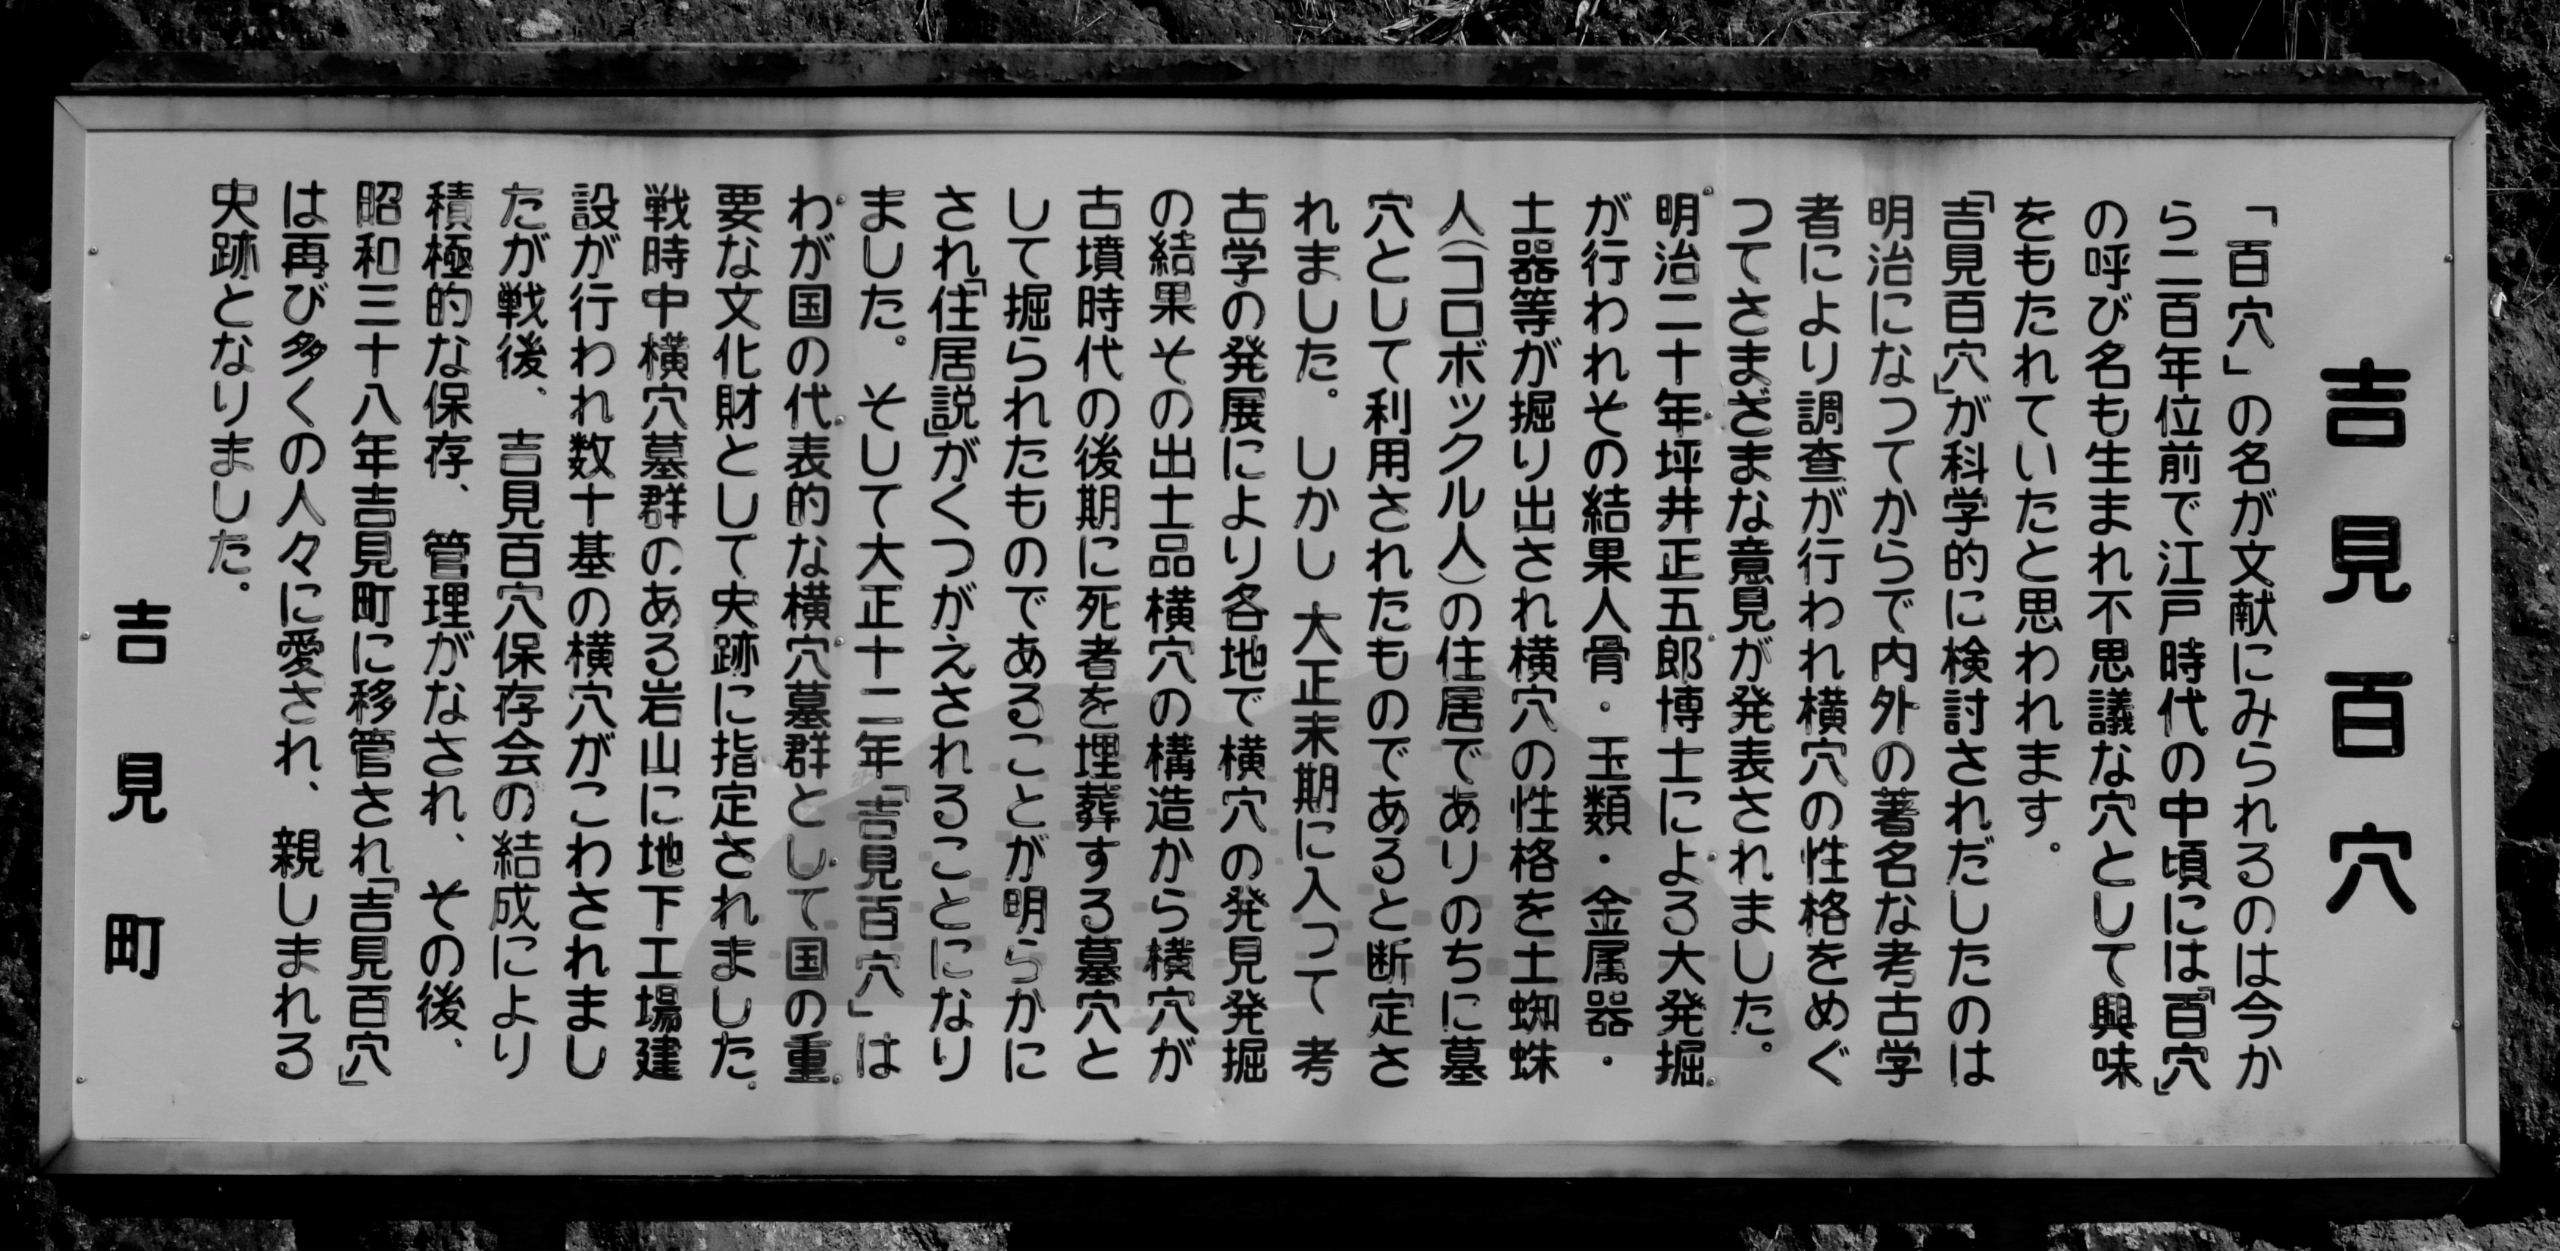 吉見百穴
「百穴」の名が文献にみられるのは今か
ら二百年位前で江戸時代の中頃には「百穴」
の呼び名も生まれ不思議な穴として興味
をもたれていたと思われます。
「吉見百穴」が科学的に検討されだしたのは
明治になつてからで内外の著名な考古学
者により調査が行われ横穴の性格をめぐ
つてさまざまな意見が発表されました。
明治二十年坪井正五郎博士による大発掘
が行われその結果人骨・玉類・金属器・
土器等が掘り出され横穴の性格を土蜘蛛
人(コロボックル人)の住居でありのちに墓
穴として利用されたものであると断定さ
れました。しかし 大正末期に入って 考
古学の発展により各地で横穴の発見発掘
の結果その出土品横穴の構造から横穴が
古墳時代の後期に死者を埋葬する墓穴と
して掘られたものであることが明らかに
され「住居説」がくつがえされることになり
ました。そして大正十二年「吉見百穴」は
わが国の代表的な横穴墓群として国の重
要な文化財として史跡に指定されました。
戦時中横穴墓群のある岩山に地下工場建
設が行われ数十基の横穴がこわされまし
たが戦後、吉見百穴保存会の結成により
積極的な保存、管理がなされ、その後、
昭和三十八年吉見町に移管され「吉見百穴」
は再び多くの人々に愛され、親しまれる
史跡となりました。
吉見町